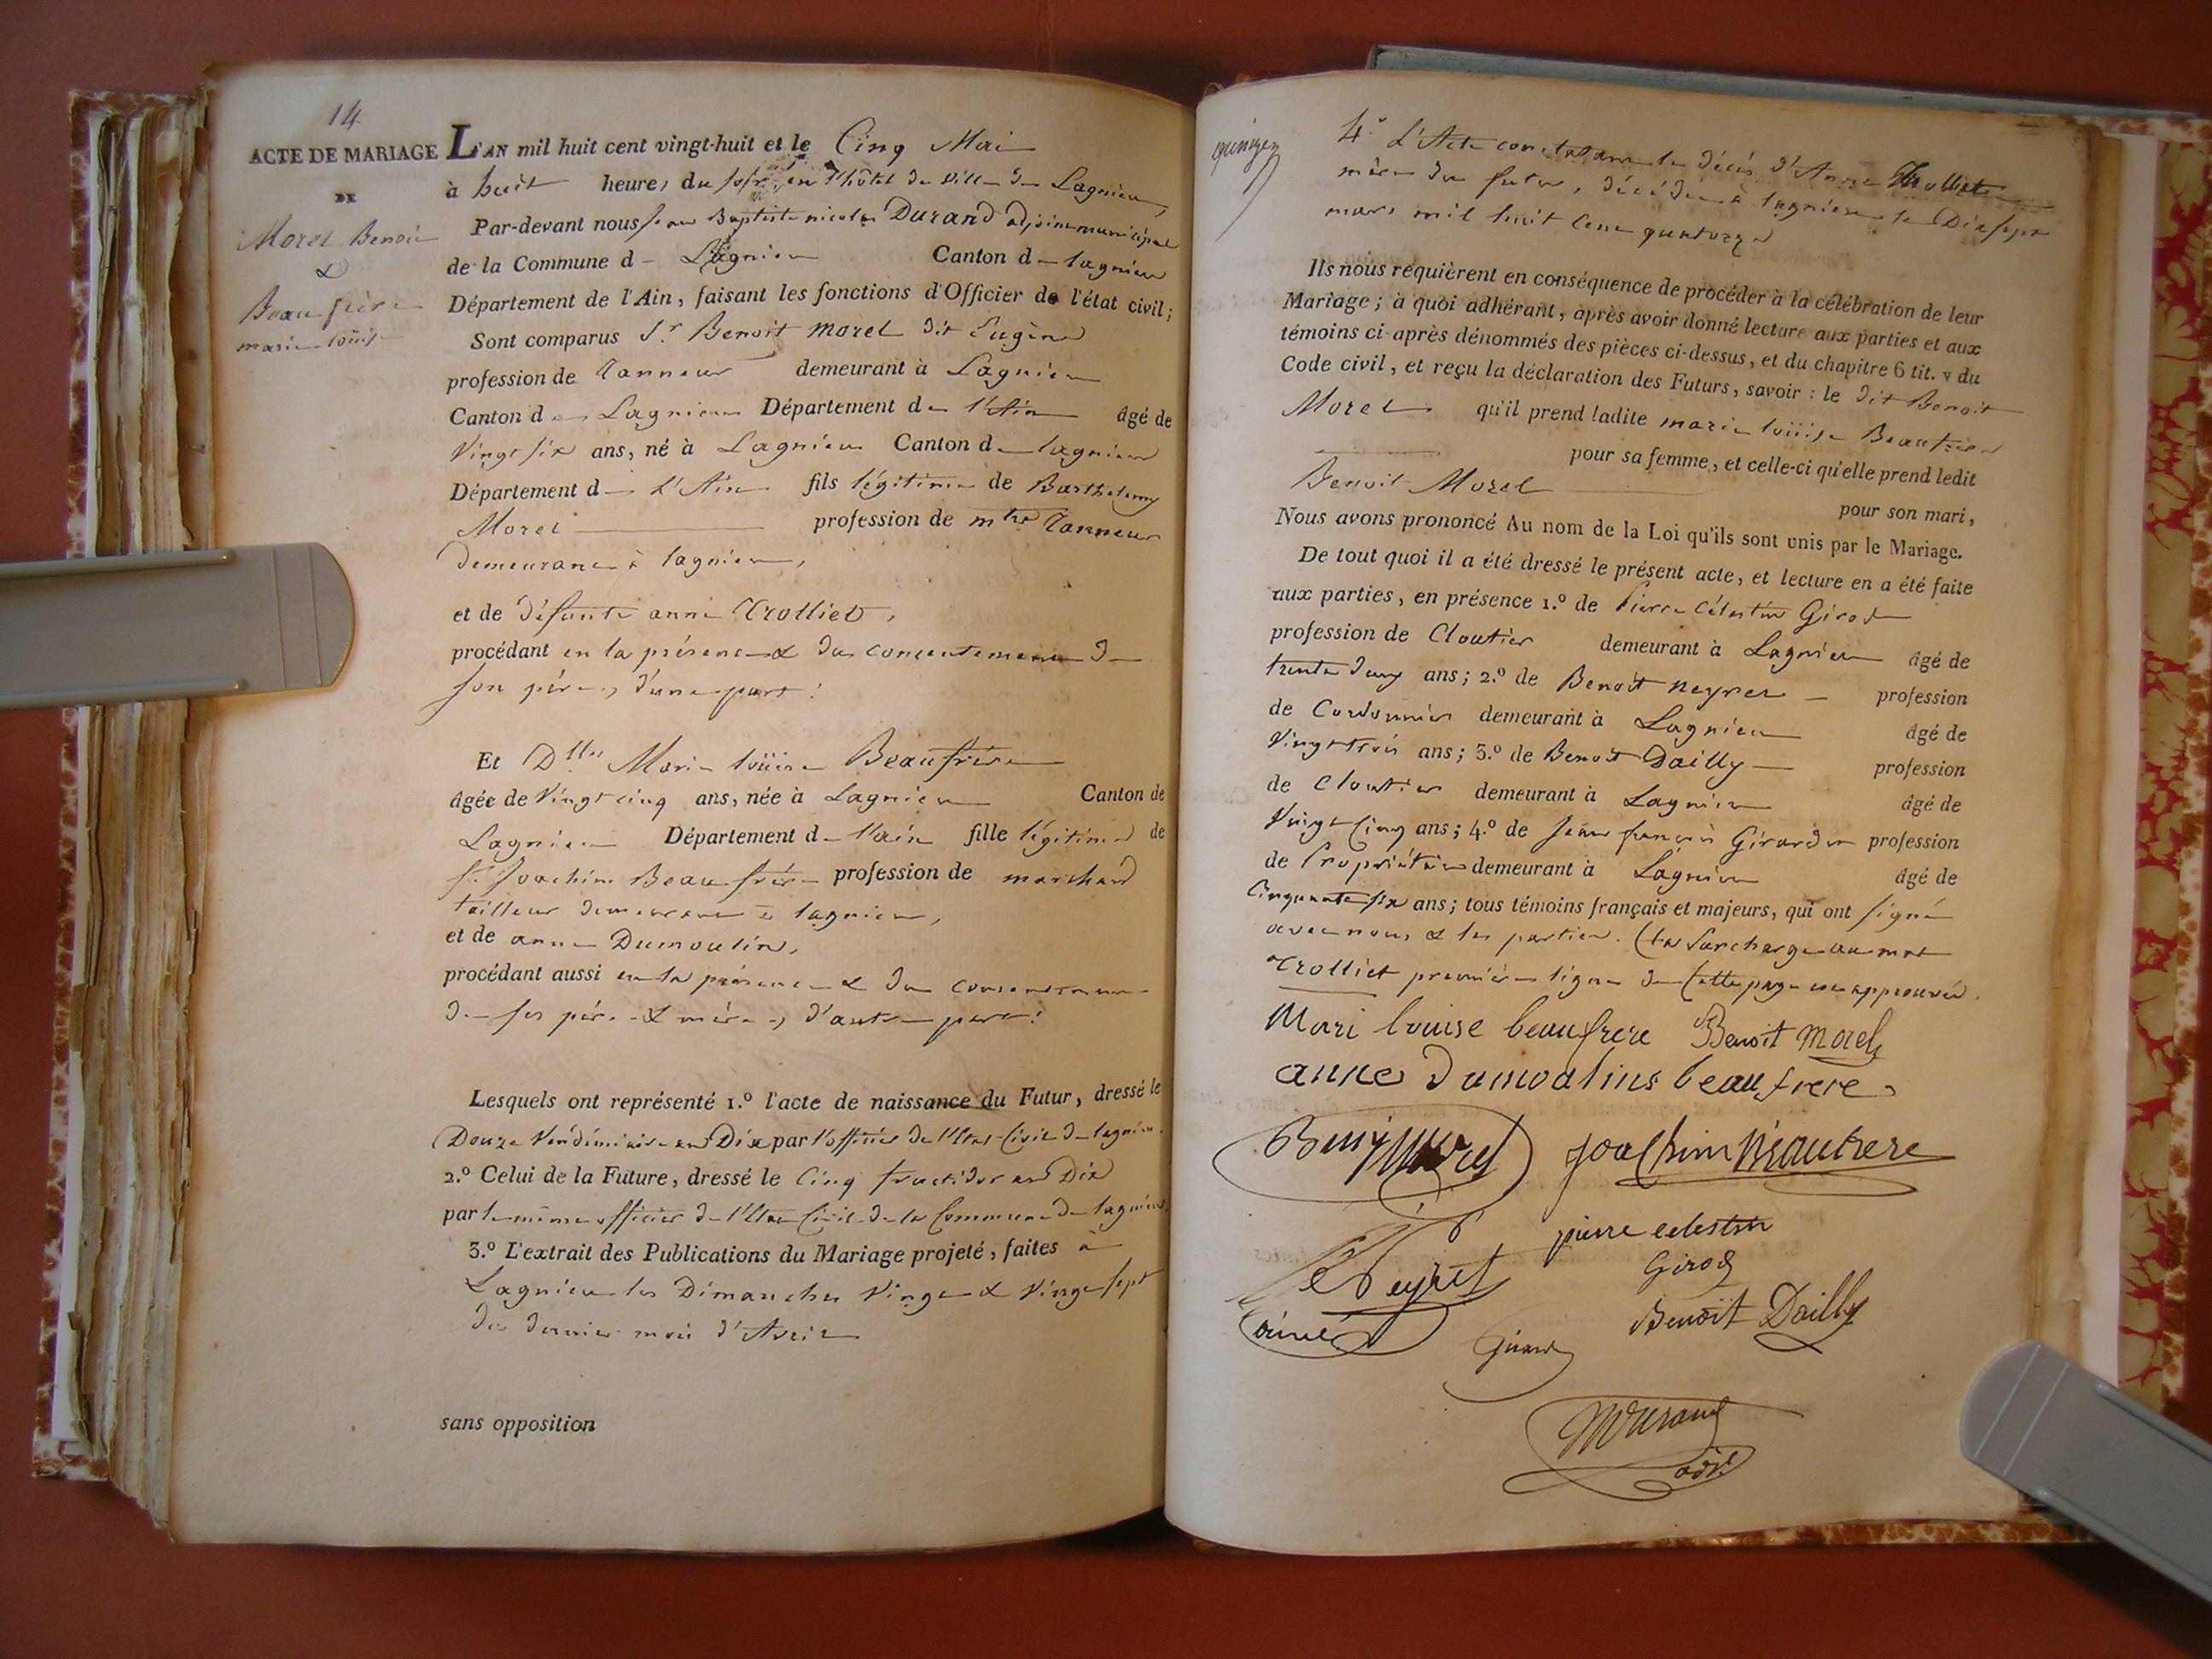 14
ACTE DE MARIAGE
DE
Morel Benoit
&
Beaufrère
marie loüise
L'AN mil huit cent vingt-huit et le Cinq Mai
à huit heures du soir, en l'hôtel de Ville de Lagnieu,
Par-devant nous Jean Baptiste nicolas Durand adjoint municipal
de la Commune de Lagnieu Canton de lagnieu
Département de l'Ain, faisant les fonctions d'Officier de l'état civil;
Sont comparus Sr Benoit Morel dit Eugène
profession de Tanneur demeurant à Lagnieu
Canton de Lagnieu Département de l'Ain âgé de
Vingt six ans, né à Lagnieu Canton de lagnieu
Département de L'Ain fils légitime de Barthelemy
Morel profession de mtre Tanneur
demeurant à lagnieu,
et de défunte anne Trolliet,
procédant en la présence & du consentement de
son père, d'une part:
Et Dlle Marie loüise Beaufrère
âgée de Vingt cinq ans, née à Lagnieu Canton de
Lagnieu Département de l'ain fille légitime de
Sr Joachim Beaufrère profession de marchand
tailleur demeurant à lagnieu,
et de anne Dumoulin,
procédant aussi en la présence & du consentement
de ses père & mère, d'autre part:
Lesquels ont représenté 1.º l'acte de naissance du Futur, dressé le
Douze Vendémiaire an Dix par l'officier de l'Etat Civil de lagnieu.
2.º Celui de la Future, dressé le Cinq fructidor an Dix
par le même officier de l'Etat Civil de la Commune de lagnieu.
3.º L'extrait des Publications du Mariage projeté, faites à
Lagnieu les Dimanches Vingt & Vingt sept
du dernier mois d'Avril
sans opposition
quinze
4º L'Acte constatant le décès d'Anne Trolliet
mère du futur, décédée à lagnieu le Dix sept
mars mil huit cent quatorze
Ils nous requièrent en conséquence de procéder à la célébration de leur
Mariage; à quoi adhérant, après avoir donné lecture aux parties et aux
témoins ci-après dénommés des pièces ci-dessus, et du chapitre 6 tit. v du
Code civil, et reçu la déclaration des Futurs, savoir: le dit Benoit
Morel qu'il prend ladite marie loüise Beaufrère
pour sa femme, et celle-ci qu'elle prend ledit
Benoit Morel
pour son mari,
Nous avons prononcé Au nom de la Loi qu'ils sont unis par le Mariage.
De tout quoi il a été dressé le présent acte, et lecture en a été faite
aux parties, en présence 1.º de Pierre Célestin Girod
profession de Cloutier demeurant à Lagnieu âgé de
trente deux ans; 2.º de Benoit neyret profession
de Cordonnier demeurant à Lagnieu âgé de
Vingt trois ans; 3.º de Benoit Dailly profession
de Cloutier demeurant à Lagnieu âgé de
Vingt Cinq ans; 4.º de Jean françois Girardin profession
de Propriétaire demeurant à Lagnieu âgé de
Cinquante six ans; tous témoins français et majeurs, qui ont signé
avec nous & les parties. (la Surcharge au mot
Trolliet première ligne de Cette page est approuvée.
Mari louise beaufrere Benoit Morel
anne dumoulins beaufrere
Morel Joachim Beaufrere
pierre celestin
Neyret Girod
ainé Benoit Dailly
Durand
adjt